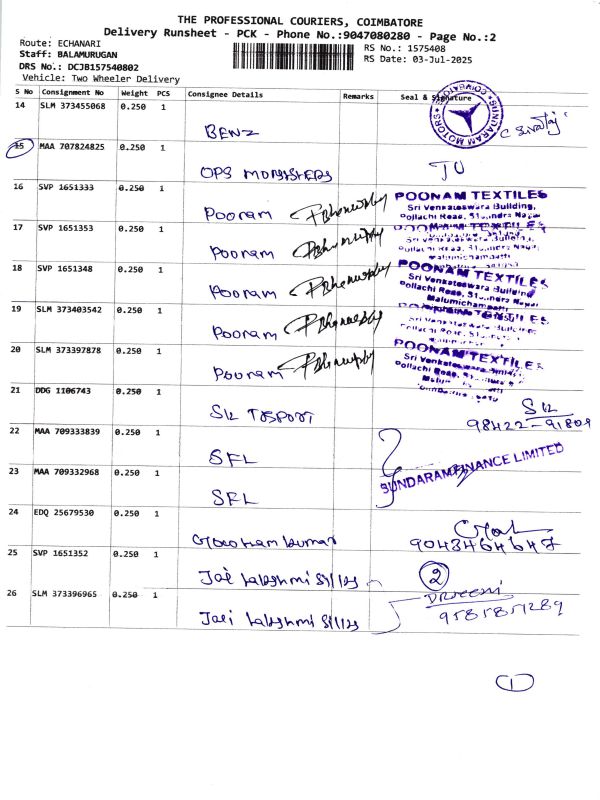 THE PROFESSIONAL COURIERS, COIMBATORE
Delivery Runsheet - PCK - Phone No.:9047080280 - Page No.:2
Route: ECHANARI
Staff: BALAMURUGAN
DRS No.: DCJB157540802
Vehicle: Two Wheeler Delivery
RS No.: 1575408
RS Date: 03-Jul-2025
S No Consignment No Weight PCS Consignee Details Remarks Seal & Signature
14 SLM 373455068 0.250 1 BENZ SUNDARAM MOTORS
15 MAA 707824825 0.250 1 OPS MONSSTERS
16 SVP 1651333 0.250 1 Poonam POONAM TEXTILES
Sri Venkateswara Building,
Pollachi Road,
17 SVP 1651353 0.250 1 Poonam
18 SVP 1651348 0.250 1 Poonam POONAM TEXTILES
Sri Venkateswara Building
Pollachi Road,
Malumichampatti
19 SLM 373403542 0.250 1 Poonam
20 SLM 373397878 0.250 1 Poonam POONAM TEXTILES
Sri Venkateswara
Pollachi Road,
21 DDG 1106743 0.250 1 SK
22 MAA 709333839 0.250 1 SFL
SUNDARAM FINANCE LIMITED
23 MAA 709332968 0.250 1 SFL
24 EDQ 25679530 0.250 1 Gowtham kumar
25 SVP 1651352 0.250 1 Jai lakshmi 2
26 SLM 373396965 0.250 1 Jai lakshmi
1